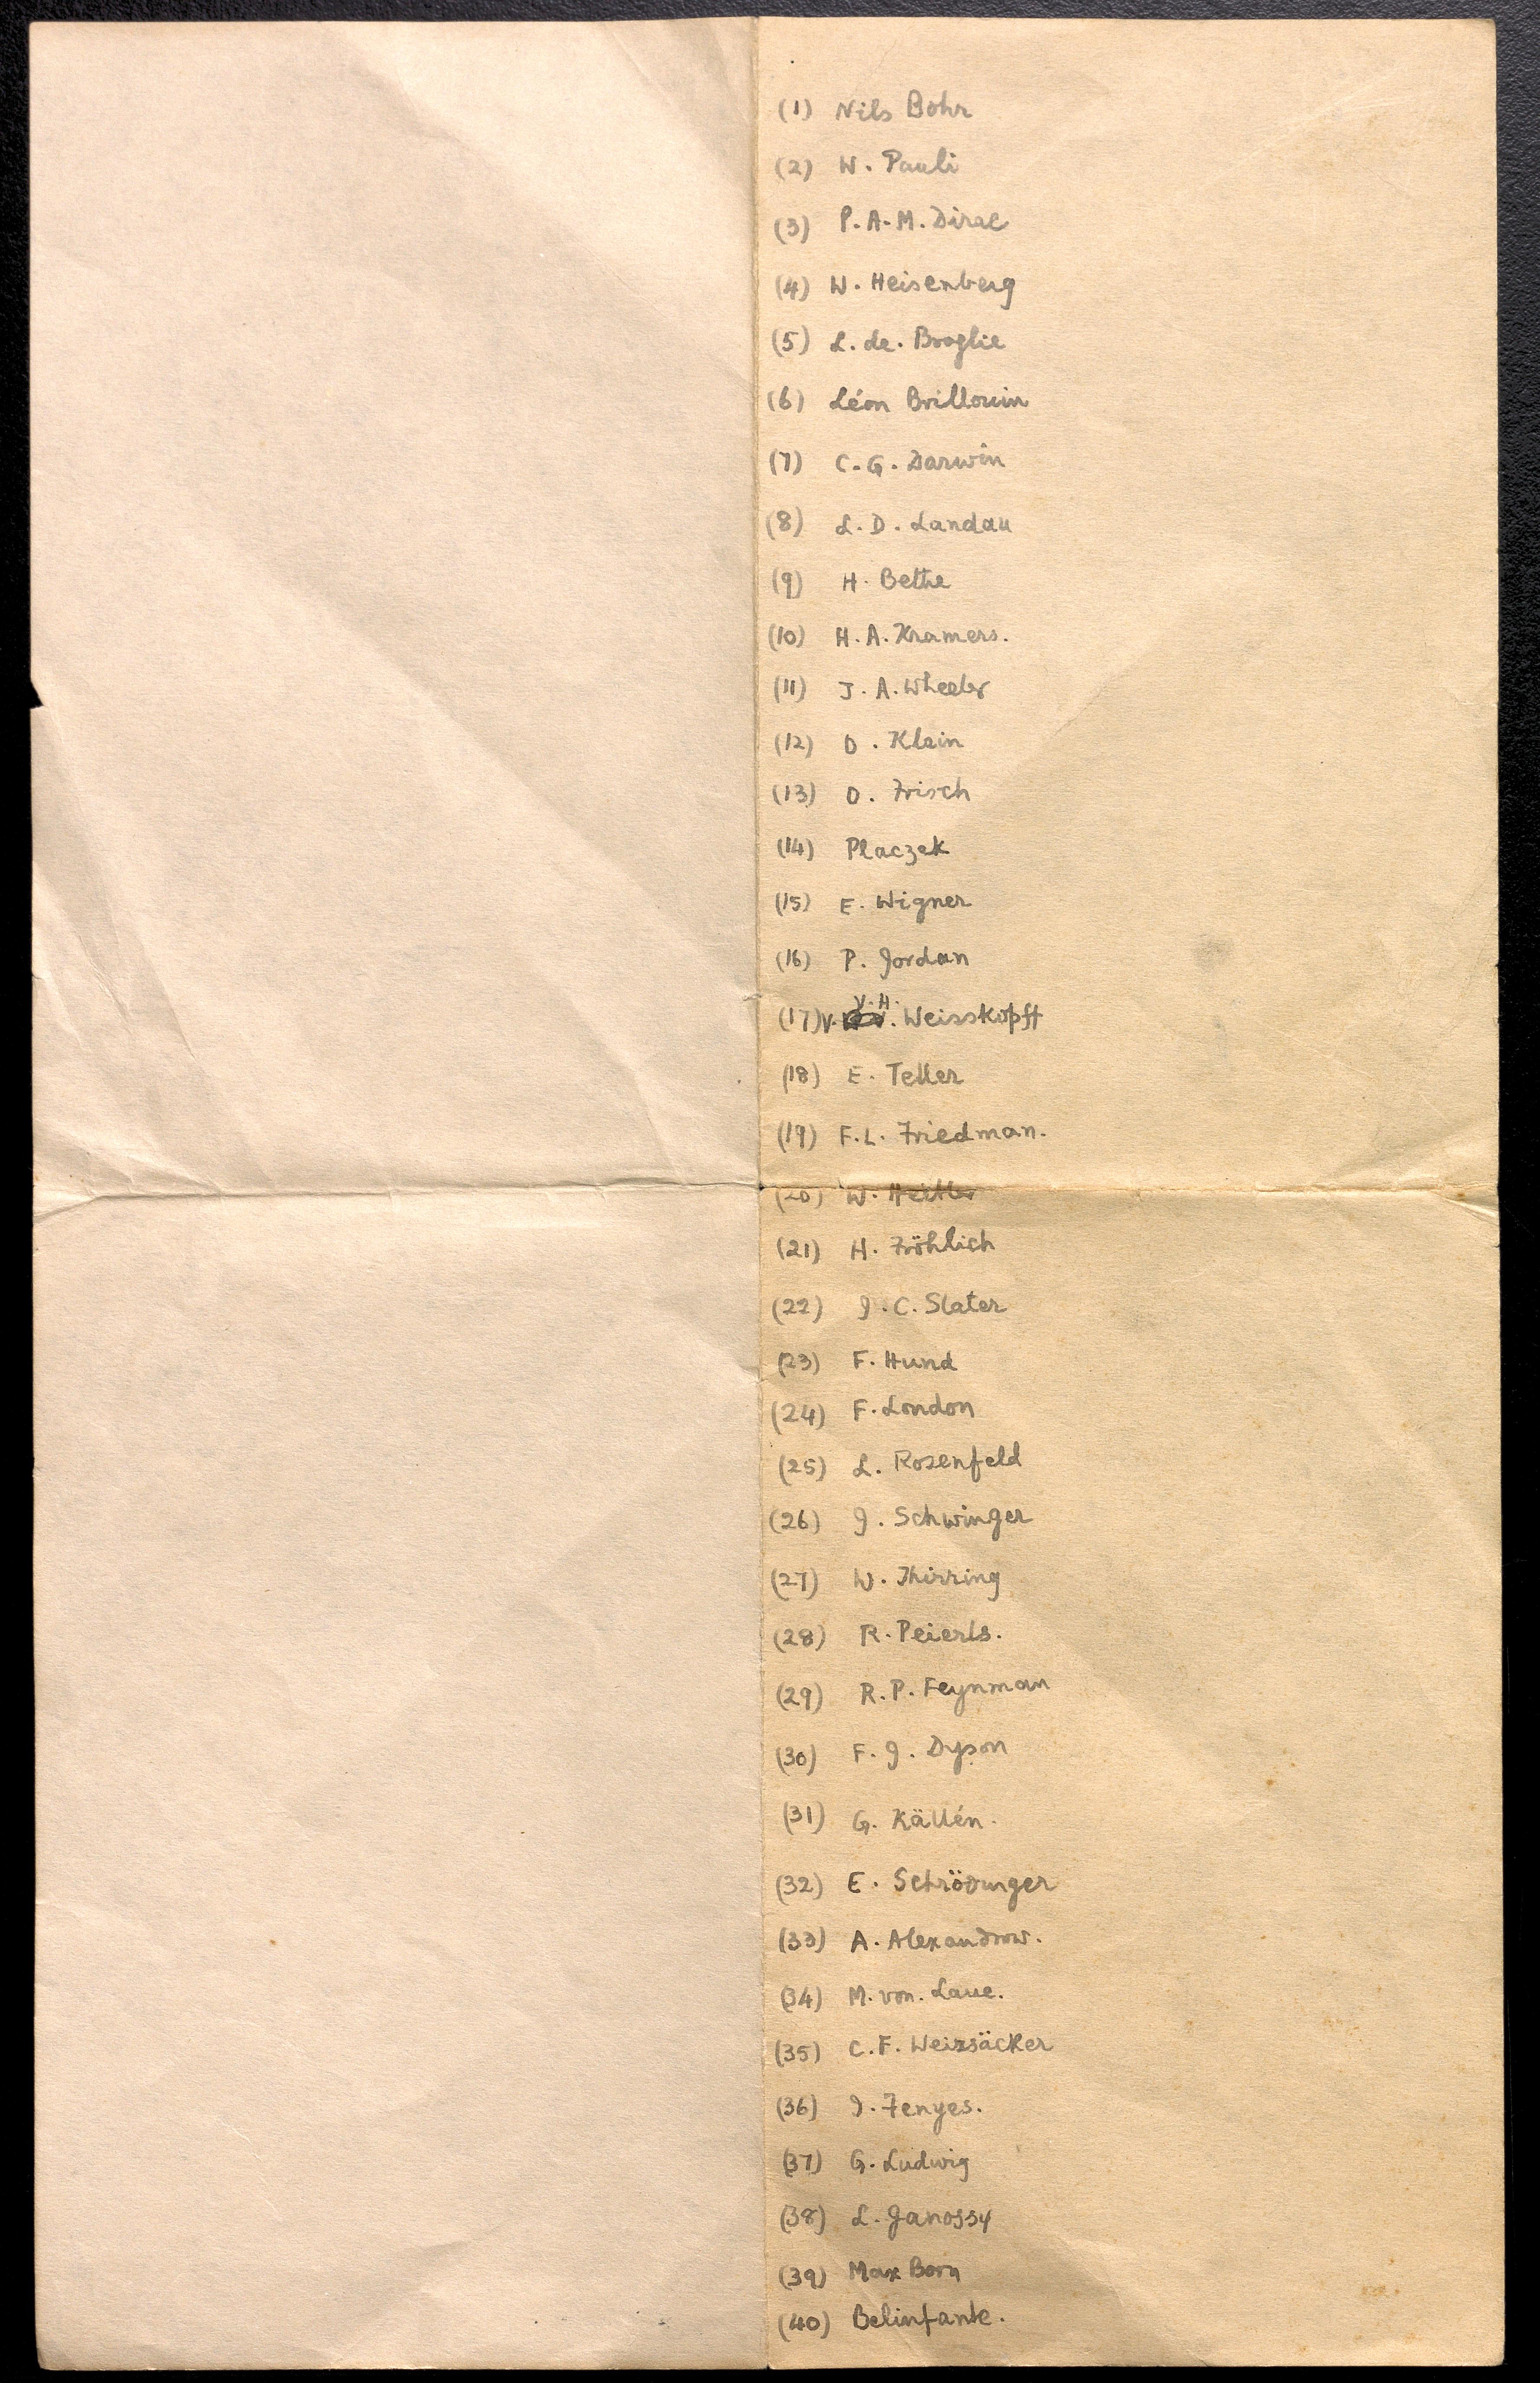 (1) Nils Bohr
(2) W. Pauli
(3) P.A.M. Dirac
(4) W. Heisenberg
(5) L. de. Broglie
(6) Léon Brillouin
(7) C.G. Darwin
(8) L.D. Landau
(9) H. Bethe
(10) H.A. Kramers.
(11) J.A. Wheeler
(12) O. Klein
(13) O. Frisch
(14) Placzek
(15) E. Wigner
(16) P. Jordan
(17) V.H. Weisskopft
(18) E. Teller
(19) F.L. Friedman.
(20) W. Heitler
(21) H. Fröhlich
(22) J.C. Slater
(23) F. Hund
(24) F. London
(25) L. Rosenfeld
(26) J. Schwinger
(27) W. Thirring
(28) R. Peierls.
(29) R.P. Feynman
(30) F.J. Dyson
(31) G. Källén.
(32) E. Schrödinger
(33) A. Alexandrow.
(34) M. von. Laue.
(35) C.F. Weizsäcker
(36) I. Fenyes.
(37) G. Ludwig
(38) L. Janossy
(39) Max Born
(40) Belinfante.